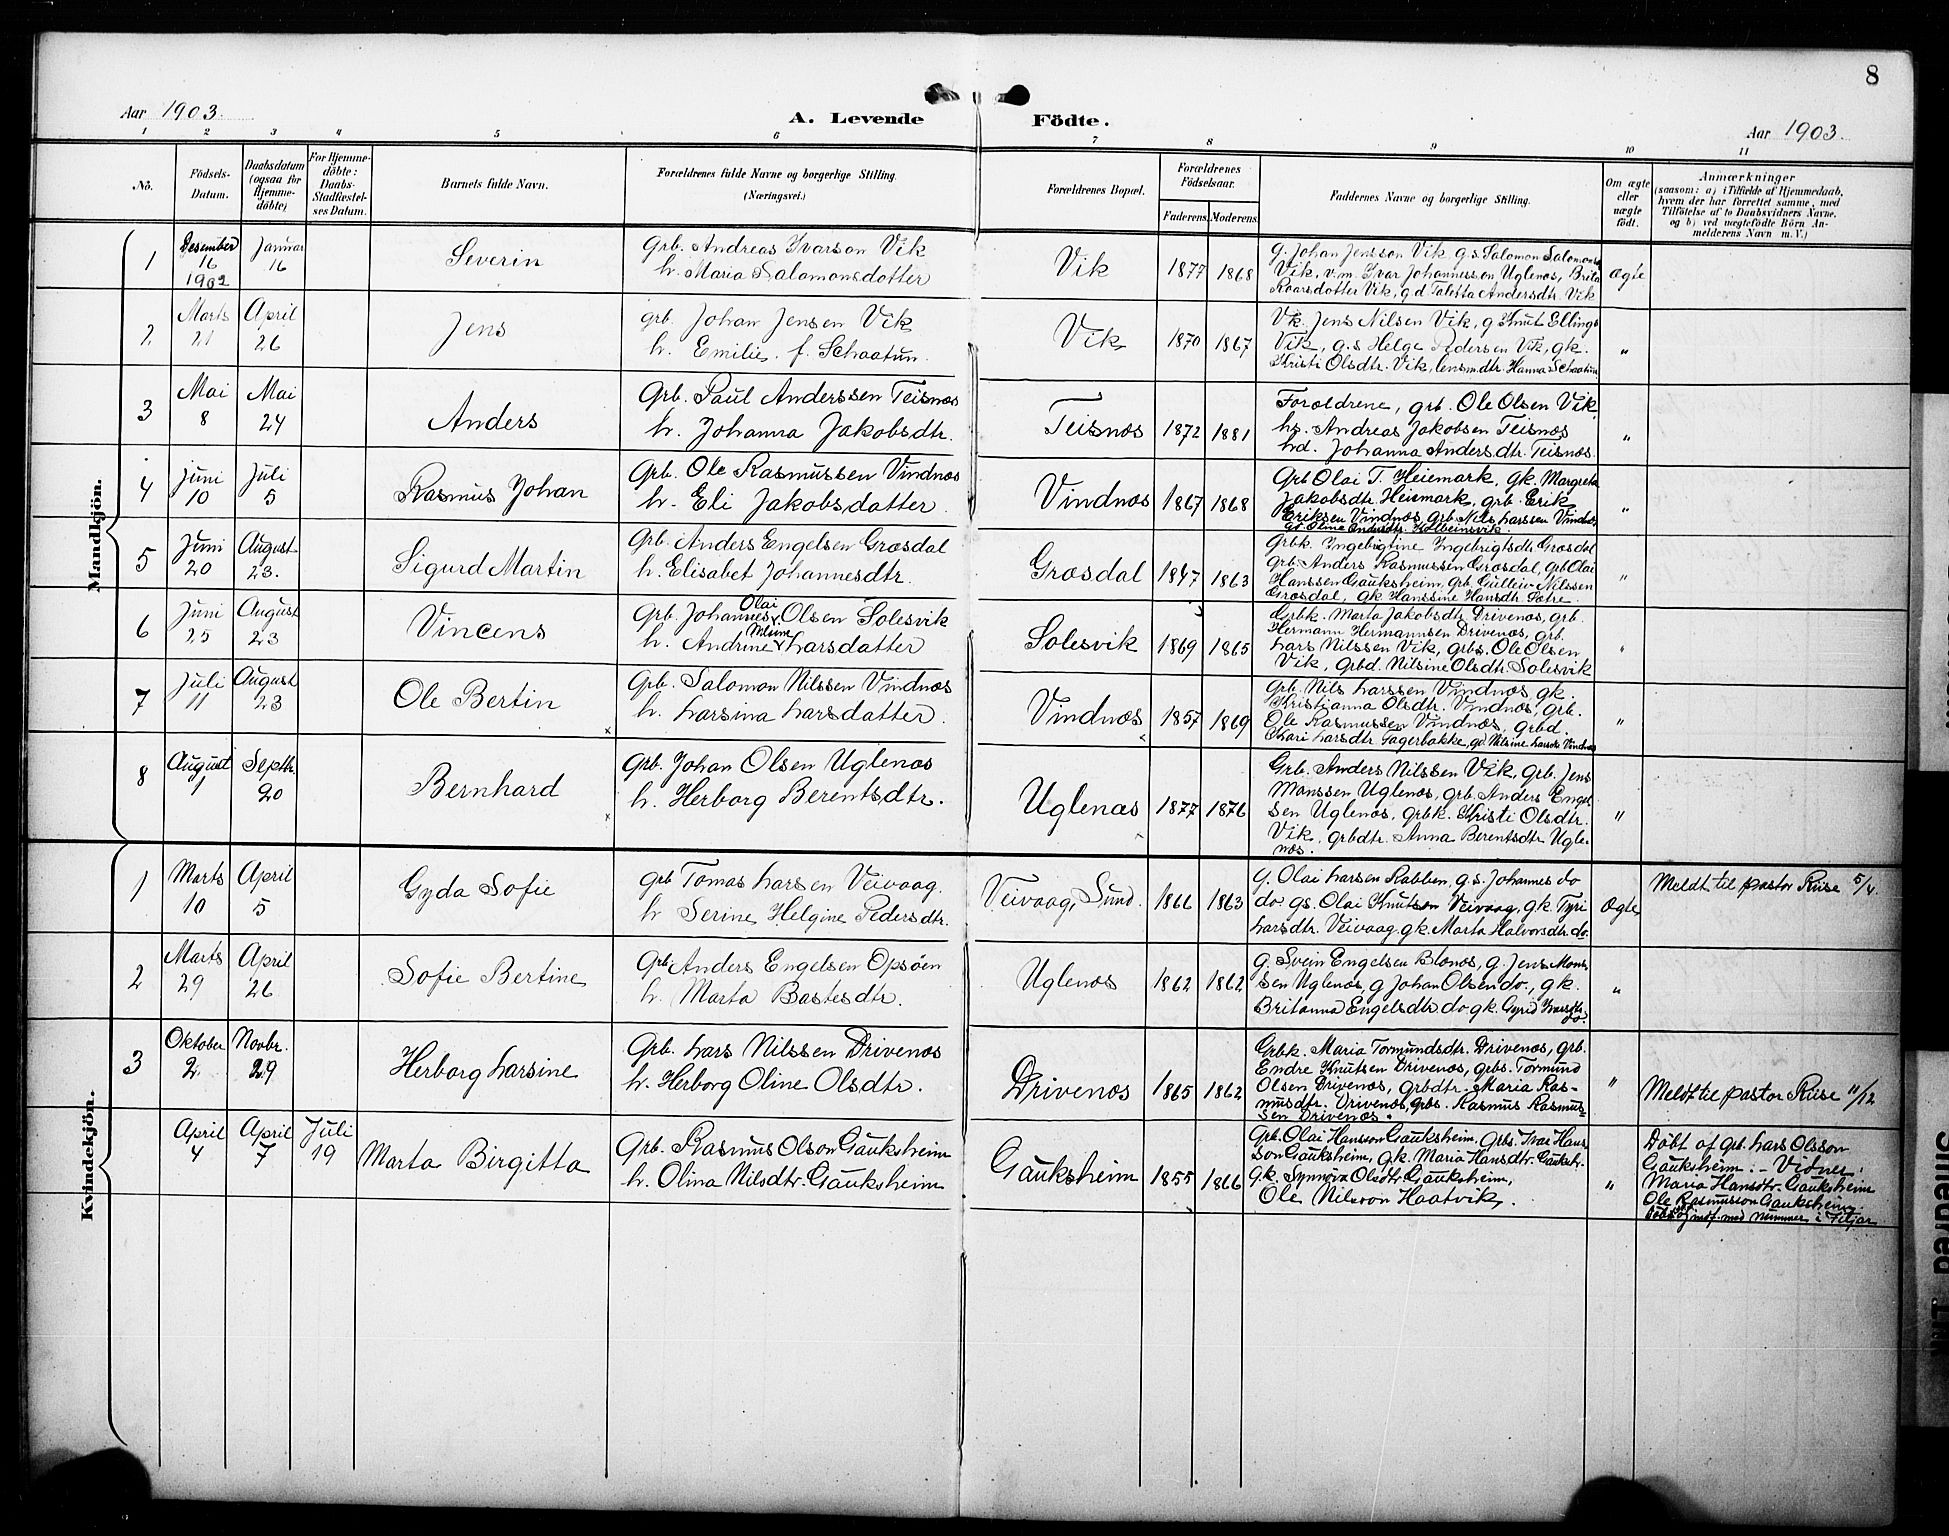 8
Aar 1903.
A. Levende Födte.
Aar 1903.
1 2 3 4 5 6 7 8 9 10 11
No.
Födsels-
Datum.
Daabsdatum
(ogsaa for
Hjemme-
döbte)
For Hjemme-
döbte:
Daabs-
Stadfæstel-
ses Datum.
Barnets fulde Navn.
Forældrenes fulde Navne og borgerlige Stilling.
(Næringsvei.)
Forældrenes Bopæl.
Forældrenes
Födselsaar.
Faderens. Moderens.
Faddernes Navne og borgerlige Stilling.
Om ægte
eller
uægte
født.
Anmærkninger
(saasom: a) i Tilfælde af Hjemmedaab,
hvem der har forrettet samme, med
Tilföielse af to Daabsvidners Navne.
og b) ved uægtefödte Börn An-
melderens Navn m. V.)
Mandkjön.
1
Desember
16
1902
Januar
16
Severin
Grb. Andreas Ivarson Vik
h. Maria Salomonsdotter
Vik
1877 1868
g. Johan Jensson Vik g.s. Salomon Salomons
Vik, v.m. Ivar Johannessen Uglenes, Brita
Roarsdotter Vik, g.d. Taletta Andersdtr. Vik
Ægte
2
Marts
21
April
26
Jens
grb. Johan Jensen Vik
h. Emilie f. Schaatun.
Vik
1870 1867
Vk. Jens Nilsen Vik, g Knut Ellings
Vik, g.s Helge Pedersen Vik, gk.
Kristi Olsdtr. Vik, lensm.dtr. Hanna Schaatun
"
3
Mai
8
Mai
24
Anders
Grb. Paul Anderssen Teisnæs
h. Johanna Jakobsdtr.
Teisnæs
1872 1881
Forældrene, grb. Ole Olsen Vik
hs. Andreas Jakobsen Teisnæs
hd. Johanna Andersdtr. Teisnæs.
"
4
Juni
10
Juli
5
Rasmus Johan
Grb. Ole Rasmussen Vindnæs
h. Eli Jakobsdatter.
Vindnæs
1867 1868
Grb Olai T. Heiemark, gk. Margreta
Jakobsdtr. Heiemark, grb. Erik
Eriksen Vindnæs, grb. Nils Larssen Vindnæs,
gd Oline Andersdtr. Kolbeinsvik
"
5
Juni
20
August
23.
Sigurd Martin
Grb. Anders Engelsen Græsdal
h. Elisabet Johannesdtr.
Græsdal
1847 1863
Grbk. Ingebrigtine Ingebrigtsdtr Græsdal
grb. Anders Rasmussen Græsdal, grb Olai
Hanssen Gauksheim, grb. Gulleiv Nilssen
Græsdal, gk Hanssine Hansdtr. Sætre.
"
6
Juni
25
August
23
Vincens
Olai
Grb. Johannes Olsen Solesvik
Nilsine
h. Andrine Larsdatter
Solesvik
1869 1865
Grbk. Marta Jakobsdtr Drivenæs, grb.
Hermann Hermannsen Drivenæs, grb.
Lars Nilssen Vik, grbs. Ole Olsen
Vik, grbd. Nilsine Olsdtr. Solesvik
"
7
Juli
11
August
23
Ole Bertin
Grb. Salomon Nilssen Vindnæs
h. Larsina Larsdatter.
Vindnæs
1857 1869
Grb. Nils Larssen Vindnæs, gk.
Kristianna Olsdtr. Vindnæs, grb.
Ole Rasmussen Vindnæs, grbd.
Kari Larsdtr Fagerbakke, gd. Nilsine Larsdtr Vindnæs
"
8
August
1
Septbr.
20
Bernhard
Grb. Johan Olsen Uglenæs
h. Herborg Berentsdtr.
Uglenæs
1877 1876
Grb. Anders Nilssen Vik, grb. Jens
Monssen Uglenæs, grb. Anders Engel
sen Uglenæs, grbk. Kristi Olsdtr.
Vik, grbdtr. Anna Berentsdtr Ugle-
næs.
"
Kvindekjön.
1
Marts
10
April
5
Gyda Sofie
Grb Tomas Larsen Veivaag.
h Serine Helgine Pedersdtr.
Veivaag, Sund.
1866 1863
G. Olai Larsen Rabben, g.s. Johannes do
do gs. Olai Knutson Veivaag, gk. Tyri
Larsdtr. Veivaag gk. Marta Halvorsdtr. do
Ægte
Meldt til pastor Riise 5/4.
2
Marts
29
April
26
Sofie Bertine
Grb. Anders Engelsen Opsöen
h. Marta Bastesdtr.
Uglenæs
1862 1862
g. Svein Engelsen Blænes, g. Jens Mons
sen Uglenæs, g Johan Olsen do., gk.
Britanna Engelsdtr. do gk. Gyrid Ivarsdtr
do.
"
3
Oktober
2
Novbr.
29
Herborg Larsine
Grb. Lars Nilssen Drivenæs
h. Herborg Oline Olsdtr.
Drivenæs
1865 1862
Grbk. Maria Tormundsdtr. Drivenæs, grb.
Endre Knutsen Drivenæs, grbs. Tormund
Olsen Drivenæs, grbdtr. Maria Ras-
musdtr. Drivenæs, grbs. Rasmus Rasmus-
sen Drivenæs.
"
Meldt til pastor Riise 11/12
April
4
April
7
Juli
19
Marta Birgitta
Grb. Rasmus Olson Gauksheim
h. Olina Nilsdtr. Gauksheim
Gauksheim
1855 1866
Grb. Olai Hansson Gauksheim, grbs. Ivar Hans
son Gauksheim, gk. Maria Hansdtr. Gauksh.
g.k. Synneva Olsdtr. Gauksheim,
Ole Nilsson Haatvik.
"
Döbt af grb. Lars Olsson
Gauksheim. – Vidner:
Maria Hansdtr. Gauksheim
Ole Rasmusson Gauksheim
indf. med nummer i Fitjar